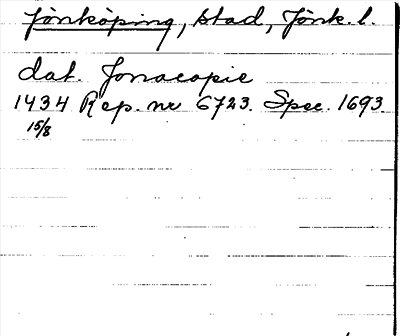 Jönköping, stad, Jönk. l.
dat. Jonacopie
1434 Rep. nr 6723. Spec. 1693
15/8